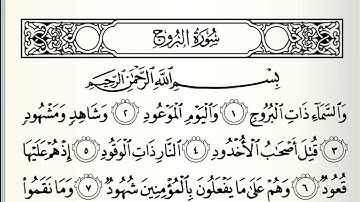 سُورَةُ البُرُوجِ
بِسْمِ اللَّهِ الرَّحْمَٰنِ الرَّحِيمِ
وَالسَّمَاءِ ذَاتِ الْبُرُوجِ ١ وَالْيَوْمِ الْمَوْعُودِ ٢ وَشَاهِدٍ وَمَشْهُودٍ
٣ قُتِلَ أَصْحَابُ الْأُخْدُودِ ٤ النَّارِ ذَاتِ الْوَقُودِ ٥ إِذْ هُمْ عَلَيْهَا
قُعُودٌ ٦ وَهُمْ عَلَىٰ مَا يَفْعَلُونَ بِالْمُؤْمِنِينَ شُهُودٌ ٧ وَمَا نَقَمُوا